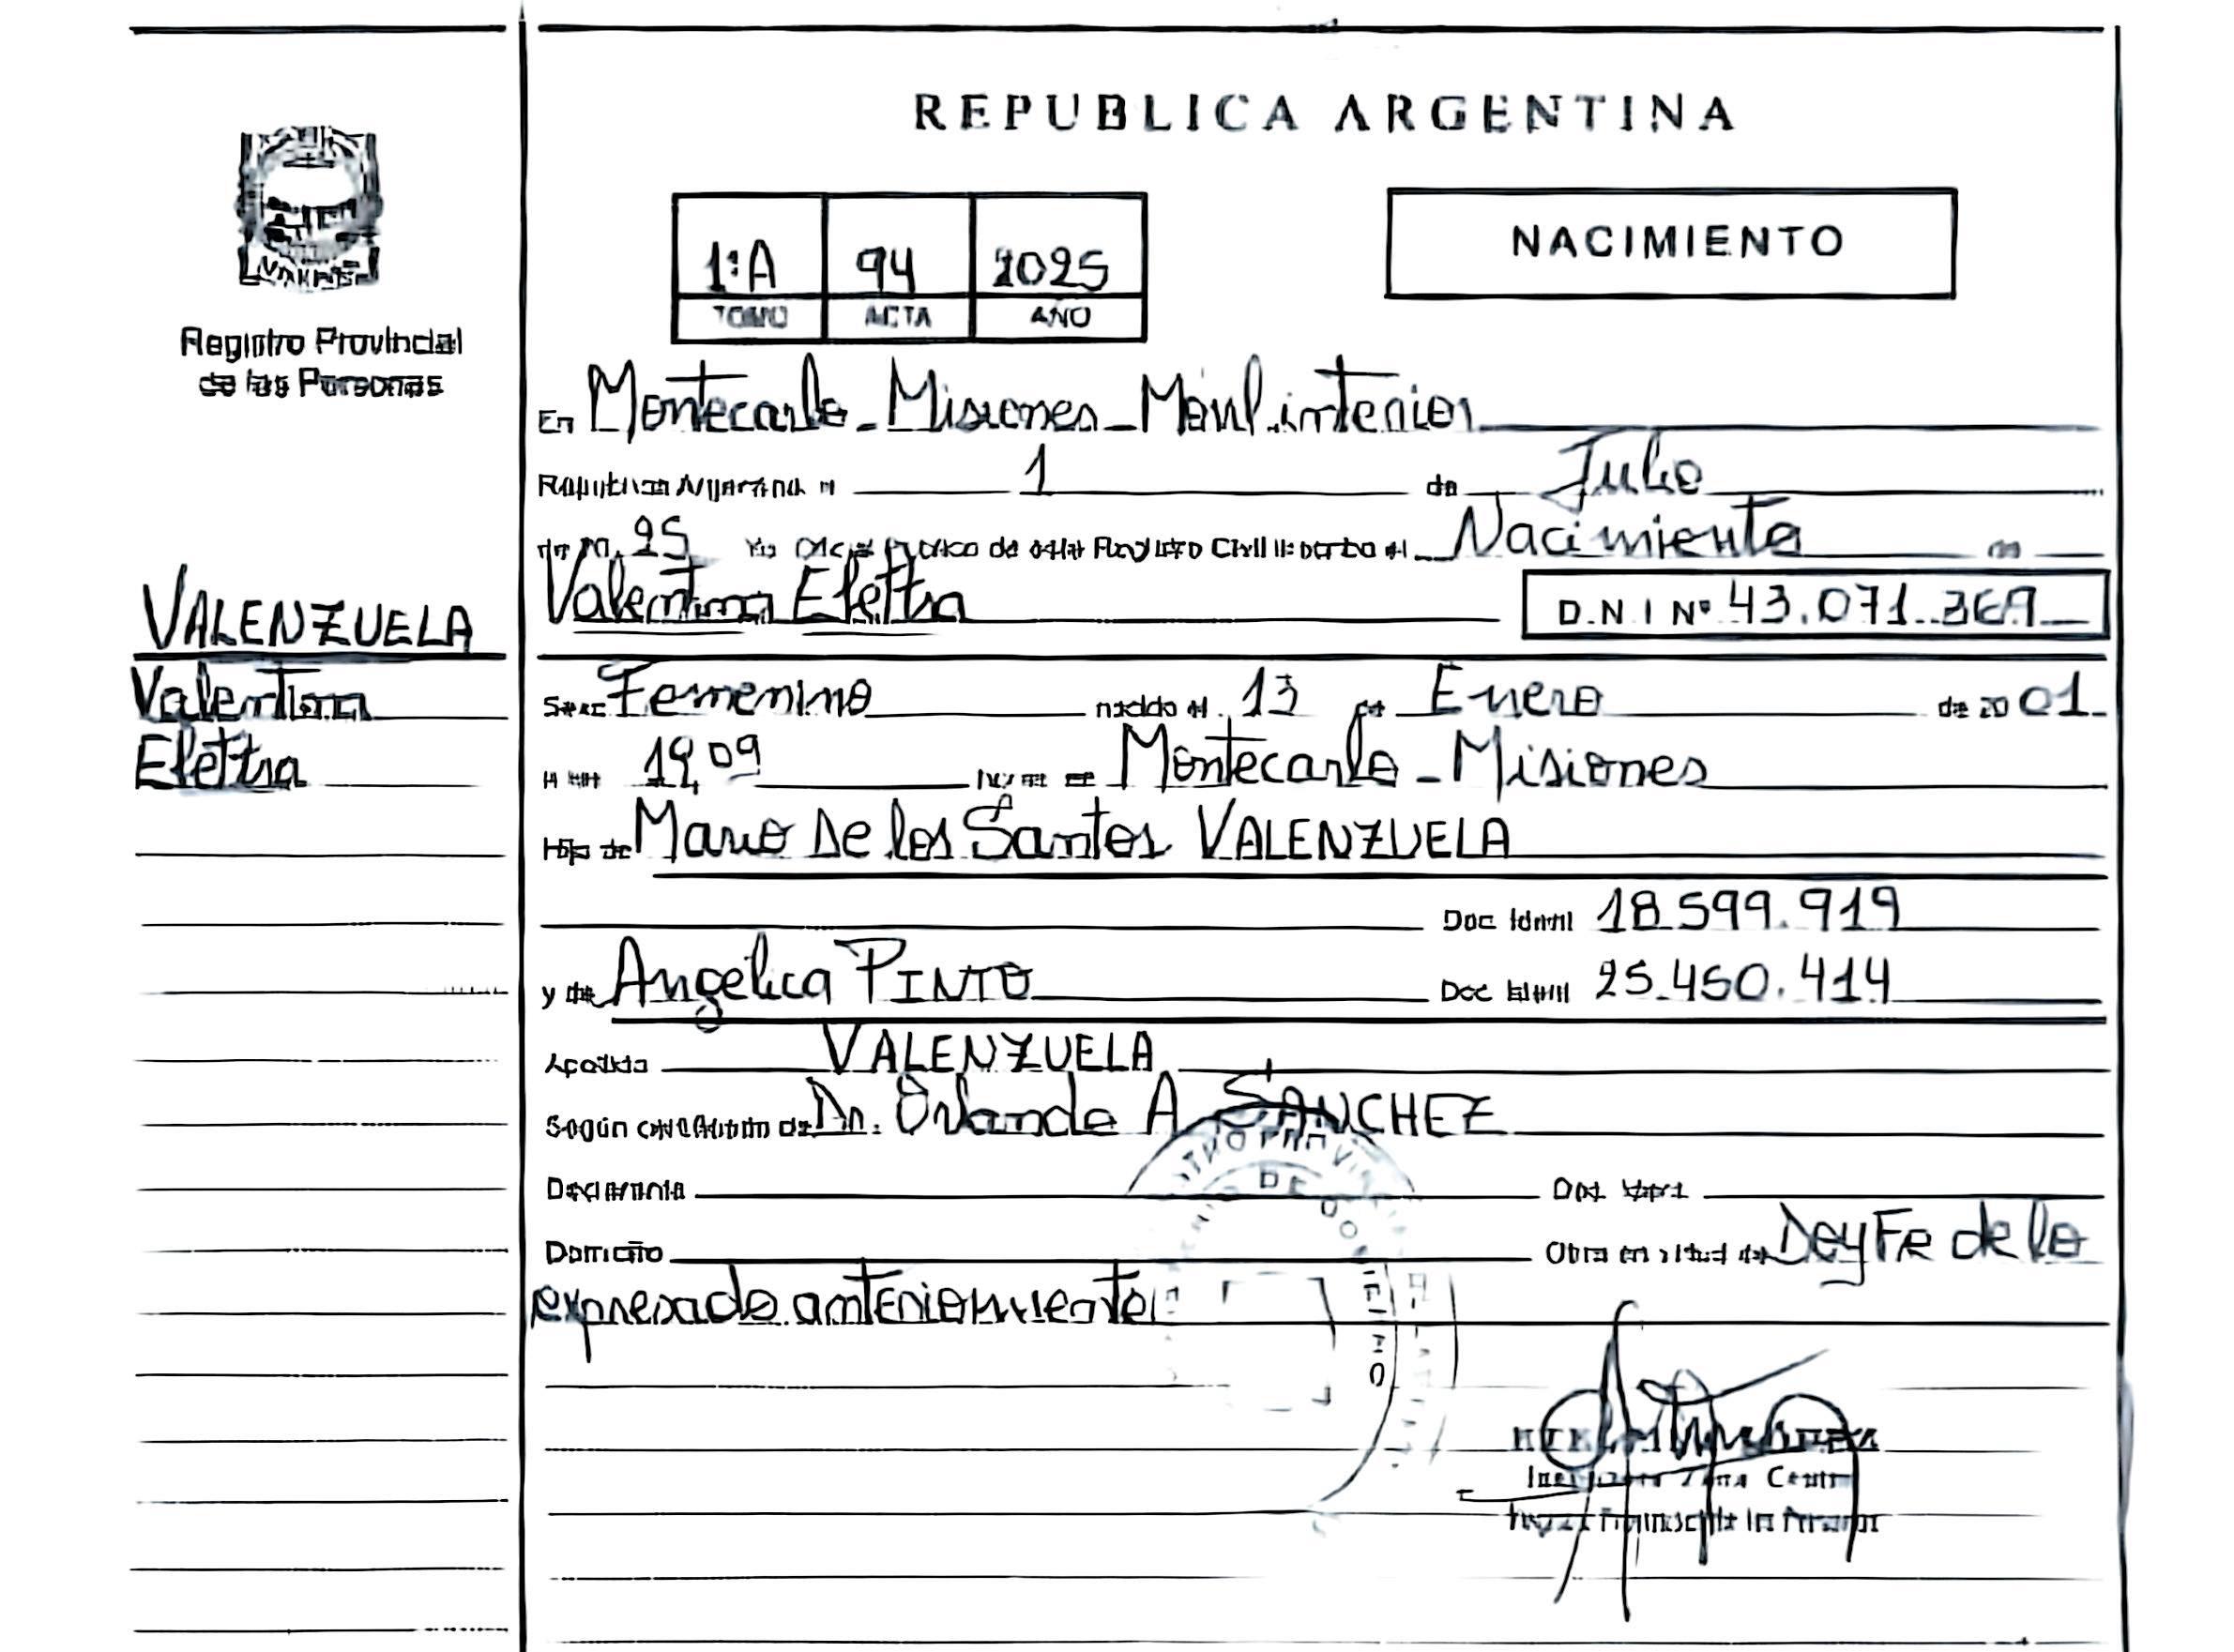 REPUBLICA ARGENTINA
NACIMIENTO
1:A 94 2025
TOMO ACTA AÑO
Registro Provincial
de las Personas
En Montecarlo - Misiones - Móvil interior
República Argentina a 1 de Julio
de 20 25 Yo Oficial Público de este Registro Civil inscribo el Nacimiento de
Valentina Elettra D.N.I Nº 43.071.369
VALENZUELA
Valentina
Elettra
Sexo Femenino nacido el 13 de Enero de 2001
A las 19,09 Montecarlo - Misiones
Hijo de Mario De los Santos VALENZUELA
Doc Ident 18.599.919
y de Angélica PINTO Doc Ident 25.450.414
Apellido VALENZUELA
Según certificado de Dr. Orlando A SANCHEZ
Declarante Doc Ident
Domicilio Obra en virtud de Ley Fe de lo
expresado anteriormente